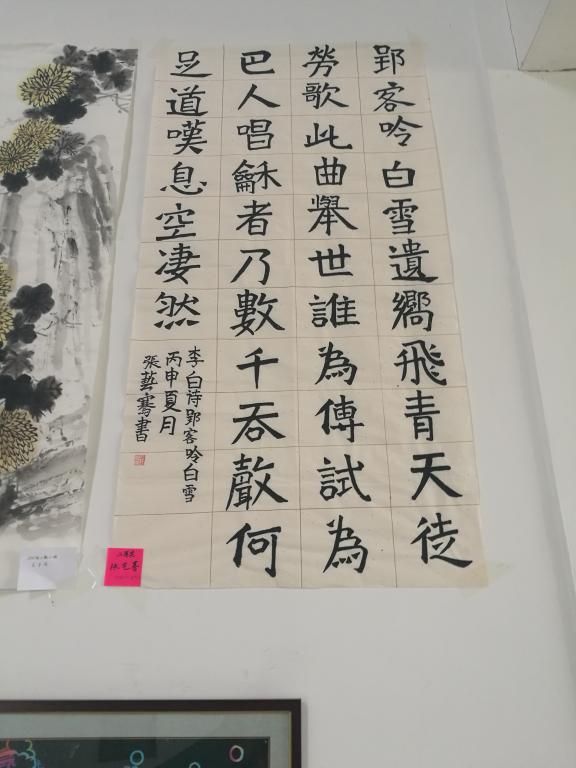 郢客吟白雪遺嚮飛青天徒
勞歌此曲舉世誰為傳試為
巴人唱龢者乃數千吞聲何
足道嘆息空凄然
李白詩郢客吟白雪
丙申夏月
張藝騫書